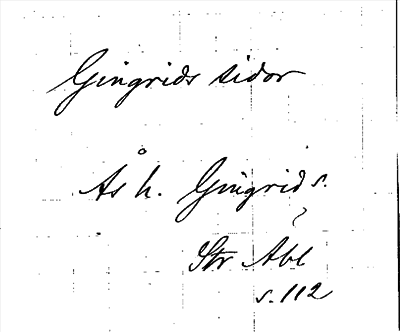 Gingrids sidor
Ås h. Gingrid s.
Str Abl
s. 112